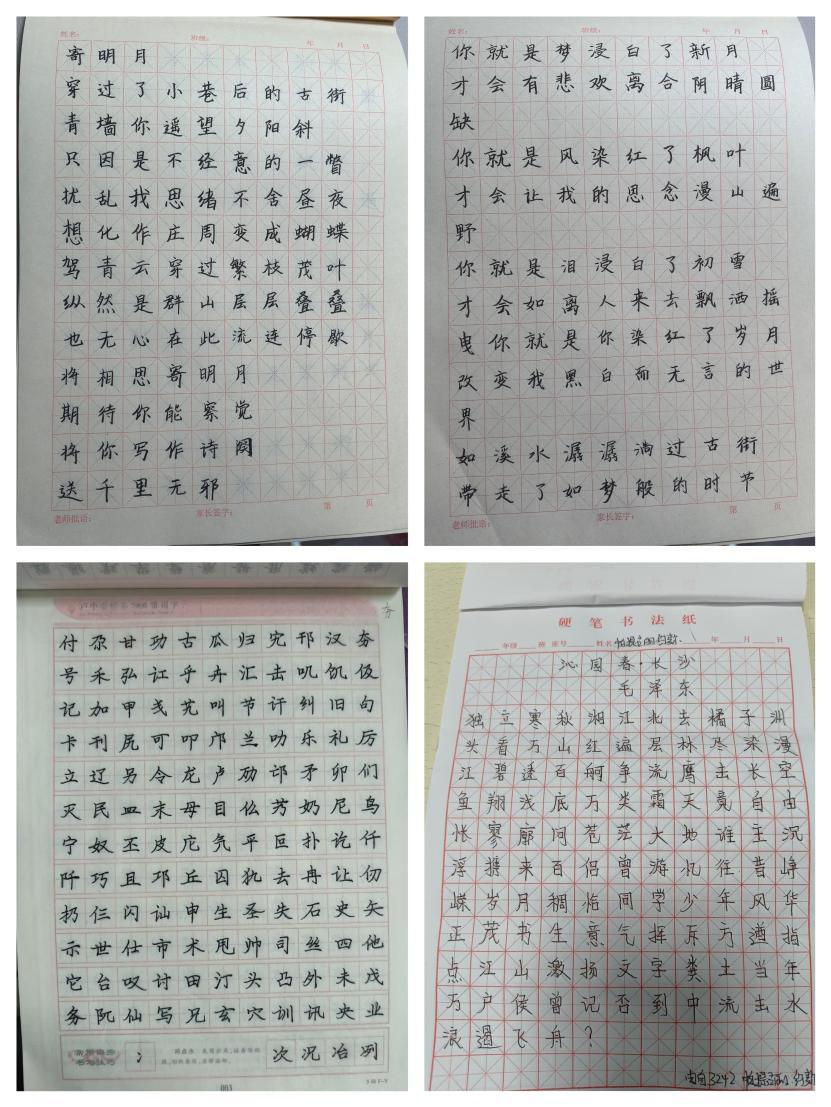 姓名： 班级： 年 月 日
寄明月
穿过了小巷后的古街
青墙你遥望夕阳斜
只因是不经意的一瞥
扰乱我思绪不舍昼夜
想化作庄周变成蝴蝶
驾青云穿过繁枝茂叶
纵然是群山层层叠叠
也无心在此流连停歇
将相思寄明月
期待你能察觉
将你写作诗阕
送千里无邪
老师批语： 家长签字： 第 页
姓名： 班级： 年 月 日
你就是梦浸白了新月
才会有悲欢离合阴晴圆
缺
你就是风染红了枫叶
才会让我的思念漫山遍
野
你就是泪浸白了初雪
才会如离人来去飘洒摇
曳你就是你染红了岁月
改变我黑白而无言的世
界
如溪水潺潺淌过古街
带走了如梦般的时节
老师批语： 家长签字： 第 页
夯
付尕甘功古瓜归宄邗汉夯
号禾弘讧乎卉汇击叽饥伋
记加甲戋艽叫节讦纠旧句
卡刊尻可叩邝兰叻乐礼厉
立辽另令龙卢劢邙矛卯们
灭民皿末母目仫艿奶尼鸟
宁奴丕皮庀氕平叵扑讫仟
阡巧且邛丘囚犰去冉让仞
扔仨闪讪申生圣失石史矢
示世仕市术甩帅司丝四他
它台叹讨田汀头凸外未戊
务阢仙写兄玄穴训讯央业
冫 次况冶冽
003
硬笔书法纸
年级 班 座号 姓名 年 月 日
沁园春·长沙
毛泽东
独立寒秋湘江北去橘子洲
头看万山红遍层林尽染漫
江碧透百舸争流鹰击长空
鱼翔浅底万类霜天竟自由
怅寥廓问苍茫大地谁主沉
浮携来百侣曾游忆往昔峥
嵘岁月稠恰同学少年风华
正茂书生意气挥斥方遒指
点江山激扬文字粪土当年
万户侯曾记否到中流击水
浪遏飞舟？
3242